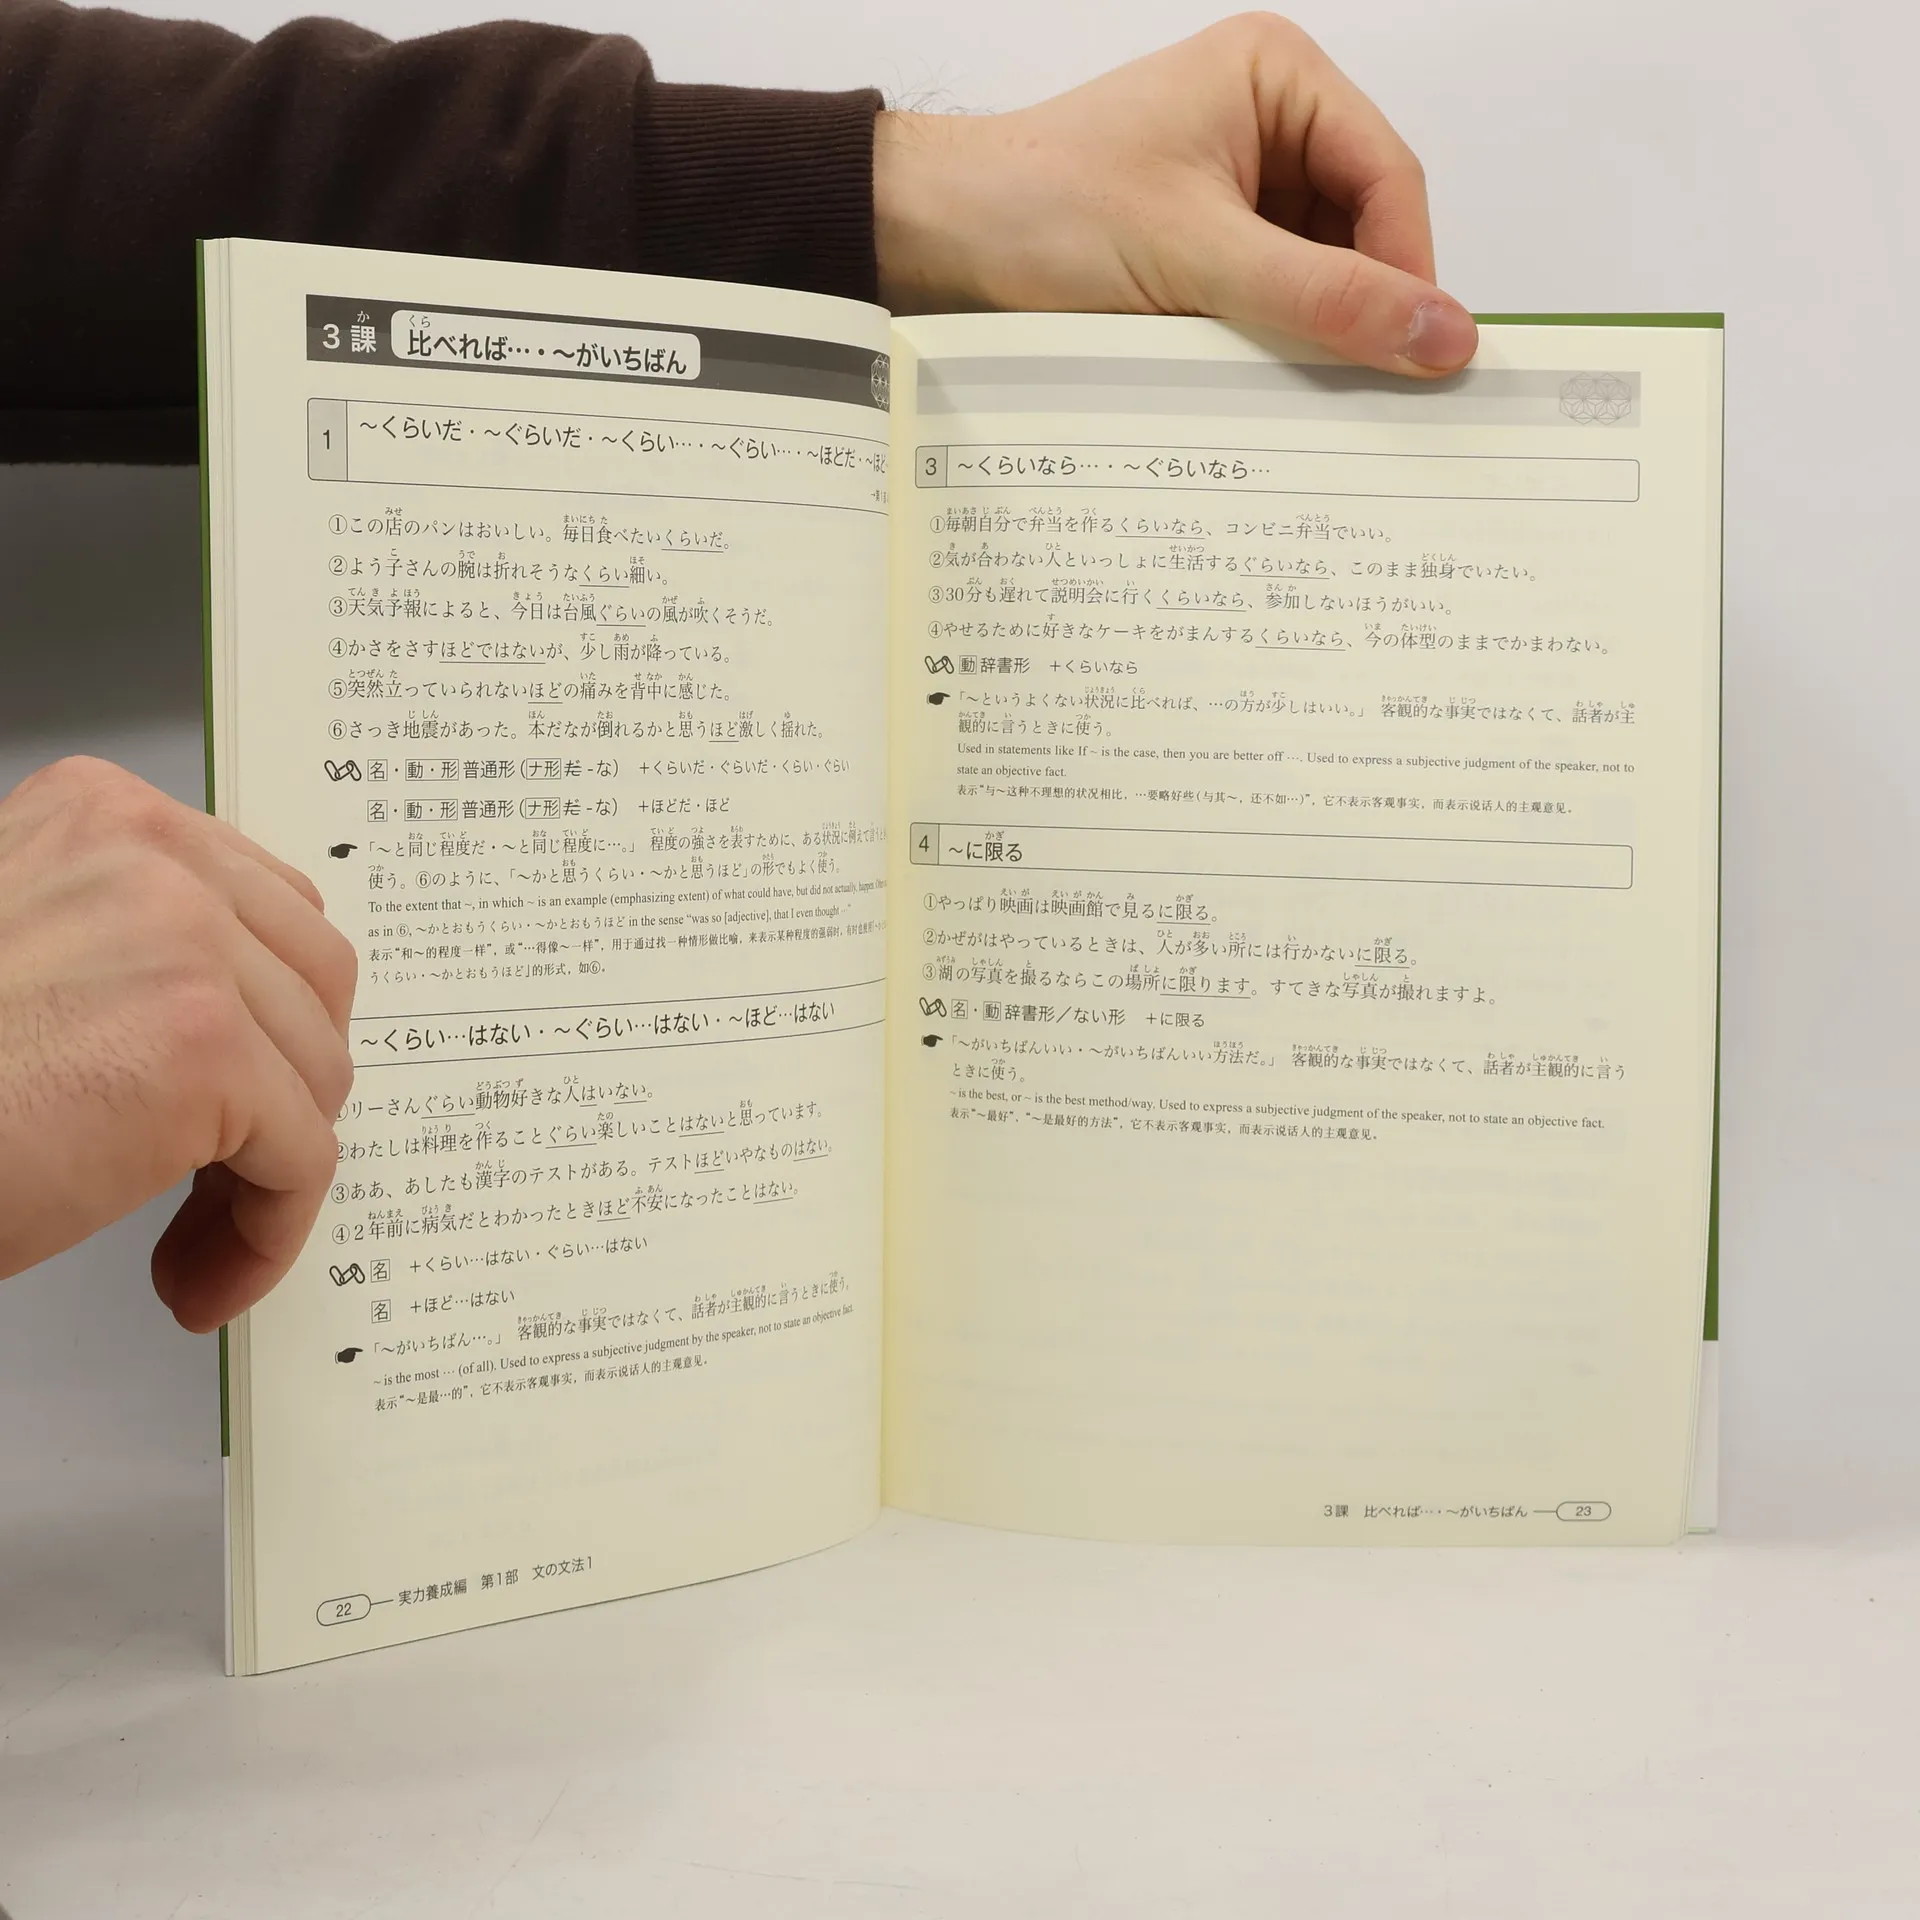 3課 比べれば…・～がいちばん
1 ～くらいだ・～ぐらいだ・～くらい…・～ぐらい…・～ほどだ・～ほど
①この店のパンはおいしい。毎日食べたいくらいだ。
②よう子さんの腕は折れそうなくらい細い。
③天気予報によると、今日は台風ぐらいの風が吹くそうだ。
④かさをさすほどではないが、少し雨が降っている。
⑤突然立っていられないほどの痛みを背中に感じた。
⑥さっき地震があった。本だなが倒れるかと思うほど激しく揺れた。
名・動・形 普通形（ナ形 だ -な） ＋くらいだ・ぐらいだ・くらい・ぐらい
名・動・形 普通形（ナ形 だ -な） ＋ほどだ・ほど
「～と同じ程度だ・～と同じ程度に…。」 程度の強さを表すために、ある状況に例えて言うと
使う。⑥のように、「～かと思うくらい・～かと思うほど」の形でもよく使う。
To the extent that ~, in which ~ is an example (emphasizing extent) of what could have, but did not actually, happen.
as in ⑥, ～かとおもうくらい・～かとおもうほど in the sense "was so [adjective], that I even thought …"
表示“和～的程度一样”，或“…得像～一样”，用于通过找一种情形做比喻，来表示某种程度的强弱时，
うくらい・～かとおもうほど」的形式，如⑥。
～くらい…はない・～ぐらい…はない・～ほど…はない
①リーさんぐらい動物好きな人はいない。
②わたしは料理を作ることぐらい楽しいことはないと思っています。
③ああ、あしたも漢字のテストがある。テストほどいやなものはない。
④2年前に病気だとわかったときほど不安になったことはない。
名 ＋くらい…はない・ぐらい…はない
名 ＋ほど…はない
「～がいちばん…。」 客観的な事実ではなくて、話者が主観的に言うときに使う。
~ is the most … (of all). Used to express a subjective judgment by the speaker, not to state an objective fact.
表示“～是最…的”，它不表示客观事实，而表示说话人的主观意见。
22 実力養成編 第1部 文の文法1
3 ～くらいなら…・～ぐらいなら…
①毎朝自分で弁当を作るくらいなら、コンビニ弁当でいい。
②気が合わない人といっしょに生活するぐらいなら、このまま独身でいたい。
③30分も遅れて説明会に行くくらいなら、参加しないほうがいい。
④やせるために好きなケーキをがまんするくらいなら、今の体型のままでかまわない。
動 辞書形 ＋くらいなら
「～というよくない状況に比べれば、…の方が少しはいい。」 客観的な事実ではなくて、話者が主
観的に言うときに使う。
Used in statements like If ~ is the case, then you are better off …. Used to express a subjective judgment of the speaker, not to
state an objective fact.
表示“与～这种不理想的状况相比，…要略好些（与其～，还不如…）”，它不表示客观事实，而表示说话人的主观意见。
4 ～に限る
①やっぱり映画は映画館で見るに限る。
②かぜがはやっているときは、人が多い所には行かないに限る。
③湖の写真を撮るならこの場所に限ります。すてきな写真が撮れますよ。
名・動 辞書形／ない形 ＋に限る
「～がいちばんいい・～がいちばんいい方法だ。」 客観的な事実ではなくて、話者が主観的に言う
ときに使う。
~ is the best, or ~ is the best method/way. Used to express a subjective judgment of the speaker, not to state an objective fact.
表示“～最好”，“～是最好的方法”，它不表示客观事实，而表示说话人的主观意见。
3課 比べれば…・～がいちばん 23